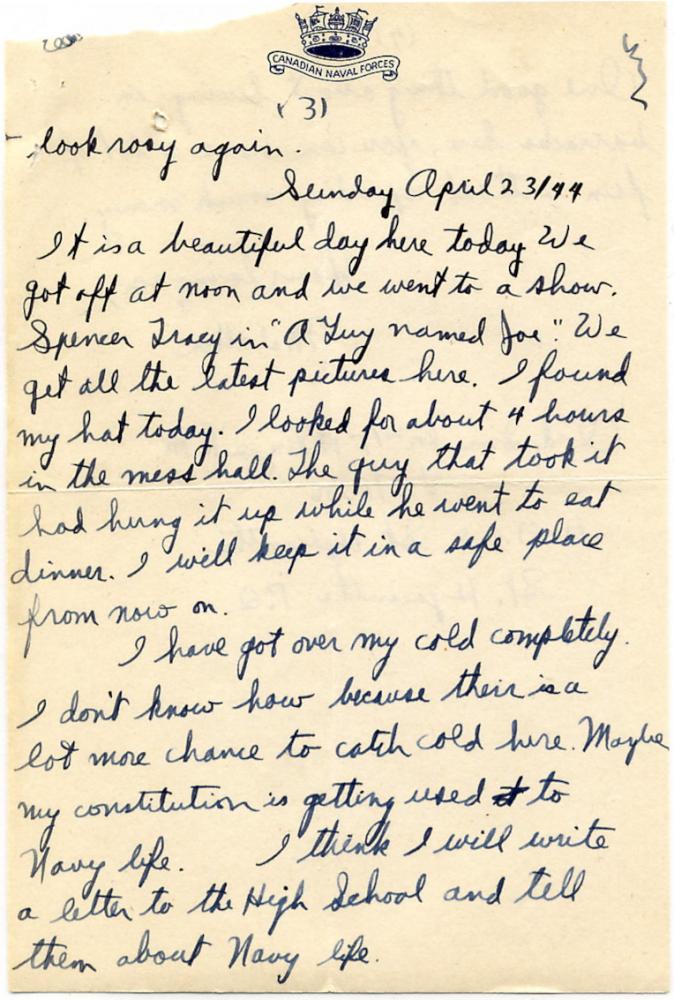 CANADIAN NAVAL FORCES
(3)
look rosy again.
Sunday April 23/44
It is a beautiful day here today We
got off at noon and we went to a show.
Spencer Tracy in "A Guy named Joe". We
get all the latest pictures here. I found
my hat today. I looked for about 4 hours
in the mess hall. The guy that took it
had hung it up while he went to eat
dinner. I will keep it in a safe place
from now on.
I have got over my cold completely.
I don't know how because their is a
lot more chance to catch cold here. Maybe
my constitution is getting used to
Navy life. I think I will write
a letter to the High School and tell
them about Navy life.